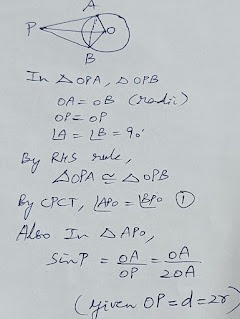 A
P
O
B
In △OPA, △OPB
OA = OB (radii)
OP = OP
∠A = ∠B = 90°
By RHS rule,
△OPA ≅ △OPB
By CPCT, ∠APO = ∠BPO ①
Also In △APO,
SinP = OA/OP = OA/2OA
(given OP = d = 2r)